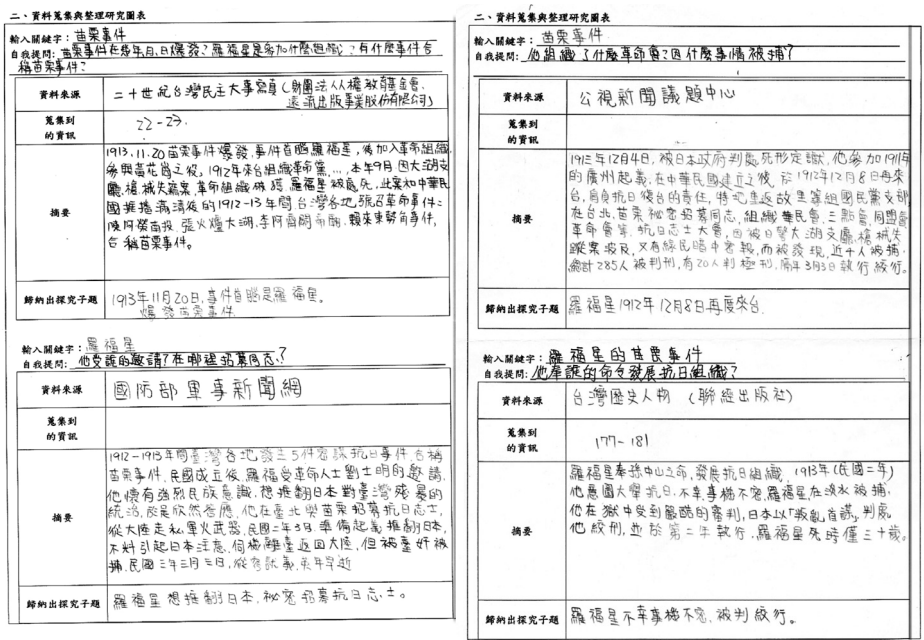 二、資料蒐集與整理研究圖表
輸入關鍵字：苗栗事件
自我提問：苗栗事件在幾年,月,日爆發？羅福星是參加什麼組織？有什麼事件合
稱苗栗事件？
資料來源
二十世紀台灣民主大事寫真（財團法人人權教育基金會、
遠流出版事業股份有限公司）
蒐集到
的資訊
22-23.
摘要
1913.11.20苗栗事件爆發,事件首腦羅福星,後加入革命組織,
參與黃花崗之役,1912年來台組織革命黨...,本年9月因大湖支
廳槍械失竊案,革命組織 羅福星被處死,此案和中華民
國推播滿清後的1912-13年間台灣各地號召革命事件:
陳阿榮南投、張火爐大湖、李阿齊關帝廟、賴來東勢角事件,
合稱苗栗事件。
歸納出探究子題
1913年11月20日,事件首腦是羅福星。
爆發苗栗事件
輸入關鍵字：羅福星
自我提問：他受誰的邀請?在哪裡招募同志?
資料來源
國防部軍事新聞網
蒐集到
的資訊
摘要
1912-1913年間臺灣各地發生5件密謀抗日事件,合稱
苗栗事件,民國成立後,羅福受革命人士劉士明的邀請,
他懷有強烈民族意識,想推翻日本對臺灣殘暴的
統治,於是欣然答應,他在臺北與苗栗招募抗日志士,
從大陸走私軍火武器,民國二年3月準備起義推翻日本,
不料引起日本注意,伺機離臺返回大陸,但被臺奸被
捕,民國三年三月三日,從容就義,英年早逝
歸納出探究子題
羅福星想推翻日本,祕密招募抗日志士。
二、資料蒐集與整理研究圖表
輸入關鍵字：苗栗事件
自我提問：他組織了什麼革命會?因什麼事情被捕?
資料來源
公視新聞議題中心
蒐集到
的資訊
摘要
191三年12月4日,被日本政府判處死刑定讞,他參加1911年
的廣州起義,在中華民國建立之後,於1912年12月8日再來
台,肩負抗日復台的責任,特地重返故里籌組國民黨支部
在台北,苗栗祕密招募同志,組織華民會、三點會、同盟會、
革命會等,抗日志士大會,因被日警大湖支廳,槍械失
竊案波及,又有線民暗中密報,而被發現,近千人被捕,
總計285人被判刑,有20人判極刑,隔年3月3日執行絞行。
歸納出探究子題
羅福星1912年12月8日再度來台.
輸入關鍵字：羅福星的苗栗事件
自我提問：他奉誰的命令發展抗日組織?
資料來源
台灣歷史人物 （聯經出版社）
蒐集到
的資訊
177-181
摘要
羅福星奉孫中山之命,發展抗日組織,1913年(民國二年)
他意圖大舉抗日,不幸事機不密,羅福星在淡水被捕,
他在獄中受到嚴酷的審判,日本以「叛亂首謀」判處
他絞刑,並於第二年執行,羅福星死時僅三十歲。
歸納出探究子題
羅福星不幸事機不密,被判絞行。